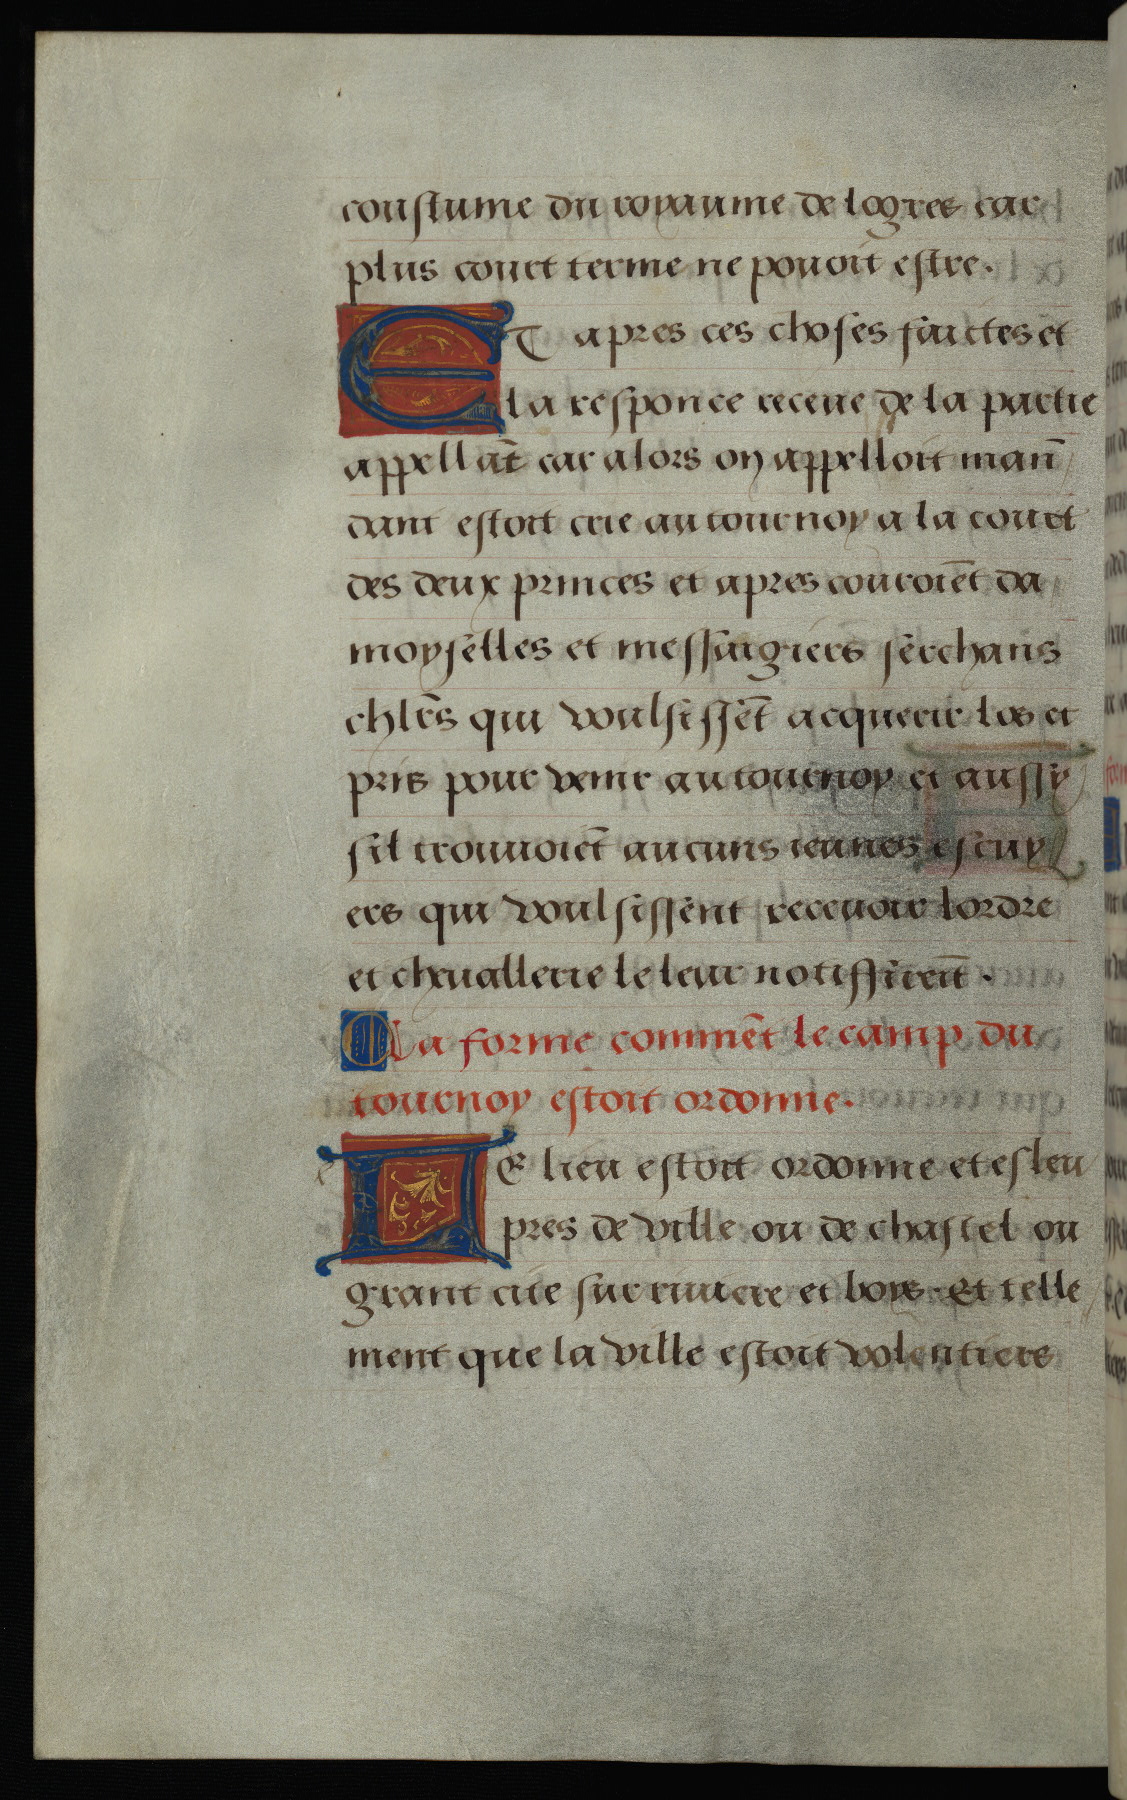 coustume du royaume de logres car
plus court terme ne pouoit estre.
ET apres ces choses faictes et
la responce receue de la partie
appellāt car alors on appelloit man̄
dant estoit crie au tournoy a la court
des deux princes et apres couroiēt da
moyselles et messaigiers serchans
chlr̄s qui voulsissēt acquerir los et
pris pour venir au tournoy et aussy
sil trouuoiēt aucuns ieunes escuy
ers qui voulsissent receuoir lordre
et cheuallerie le leur notiffireīt.
La forme commēt le camp du
tournoy estoit ordonne.
LE lieu estoit ordonne et esleu
pres de ville ou de chastel ou
grant cite sur riuiere et boys. Et telle
ment que la ville estoit volentiers